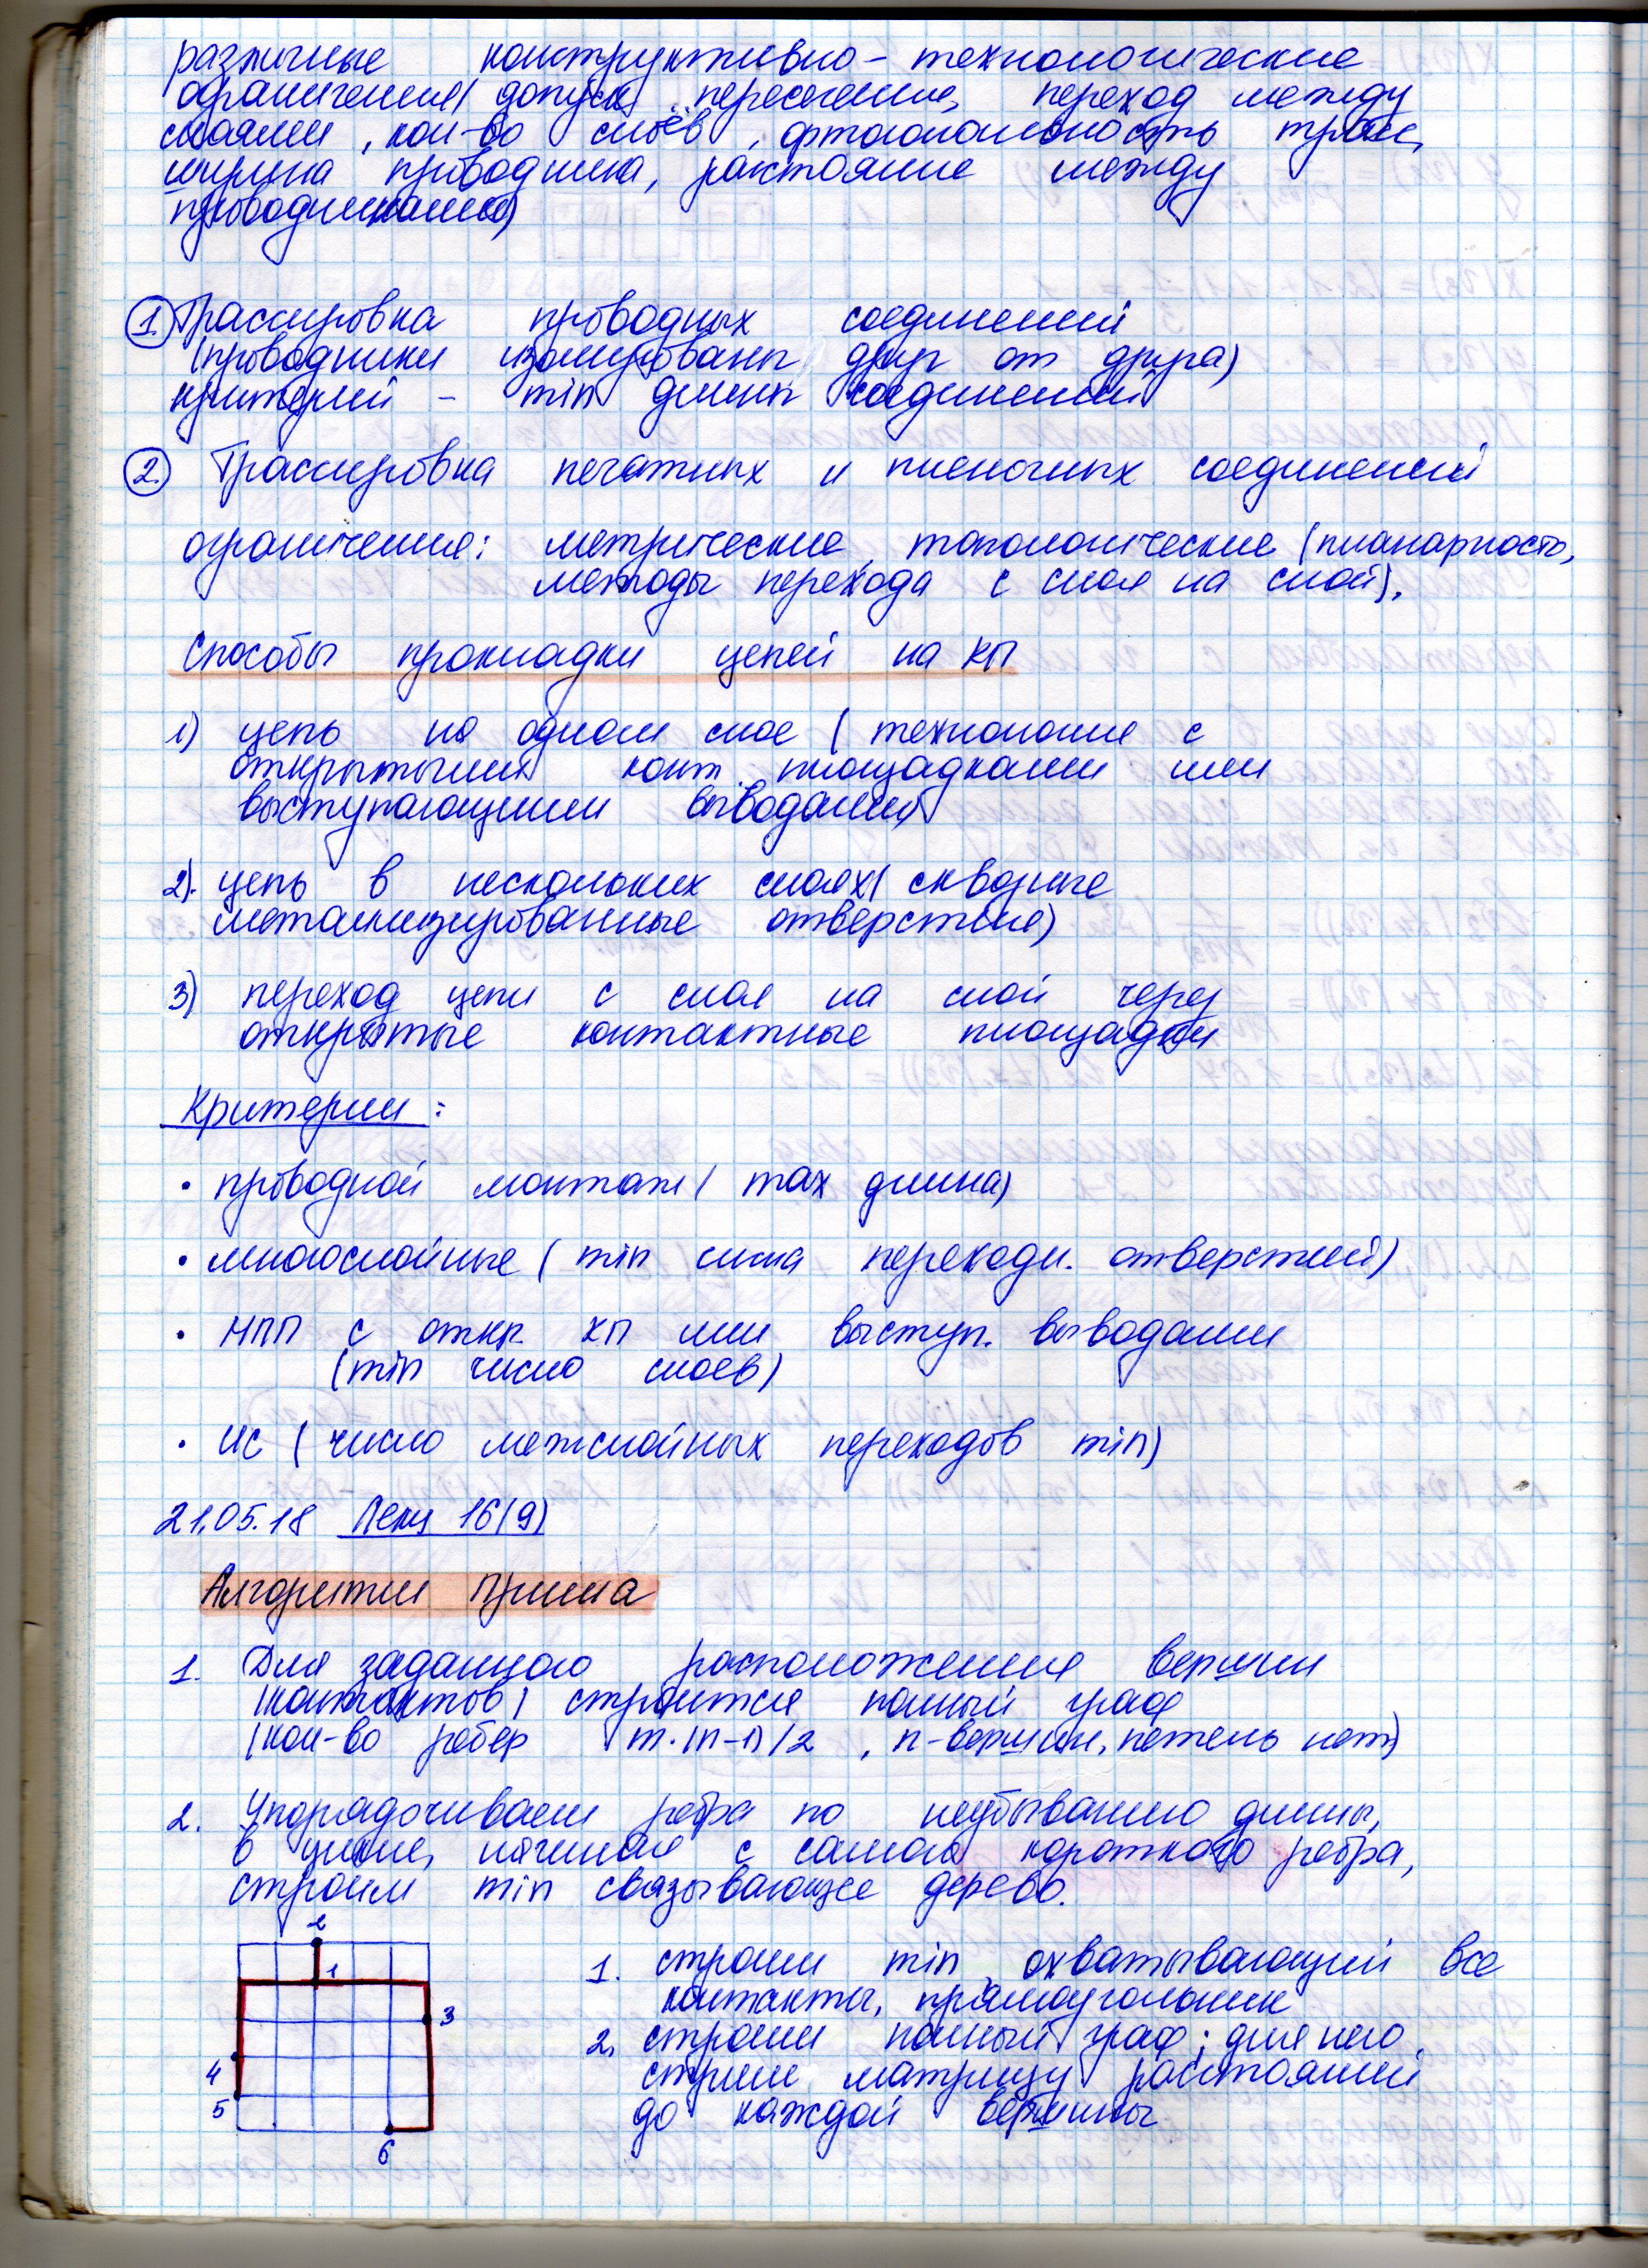 различные конструктивно-технологические
ограничения (допуск. пересечения, переход между
слоями, кол-во слоёв, ортогональность трасс,
ширина проводника, расстояние между
проводниками)
1. Трассировка проводных соединений
(проводники изолированы друг от друга)
критерий - min длины соединений
2. Трассировка печатных и пленочных соединений
ограничения: метрические, топологические (планарность,
методы перехода с слоя на слой).
Способы прокладки цепей на КП
1) цепь на одном слое (технология с
открытыми конт. площадками или
выступающими выводами)
2). цепь в нескольких слоях (сквозные
металлизированные отверстия)
3) переход цепи с слоя на слой через
открытые контактные площадки
Критерии:
• проводной монтаж (max длина)
• многослойные (min числа переходн. отверстий)
• МПП с откр. КП или выступ. выводами
(min число слоев)
• ИС (число межслойных переходов min)
21.05.18 Лекц 16(9)
Алгоритм Прима
1. Для заданного расположения вершин
(контактов) строится полный граф
(кол-во ребер m·(n-1)/2, n-вершин, петель нет)
2. Упорядочиваем ребра по неубыванию длины,
в цикле, начиная с самого короткого ребра,
строим min связывающее дерево.
2
1
3
4
5
6
1. строим min, охватывающий все
контакты, прямоугольник
2. строим полный граф; для него
строим матрицу расстояний
до каждой вершины